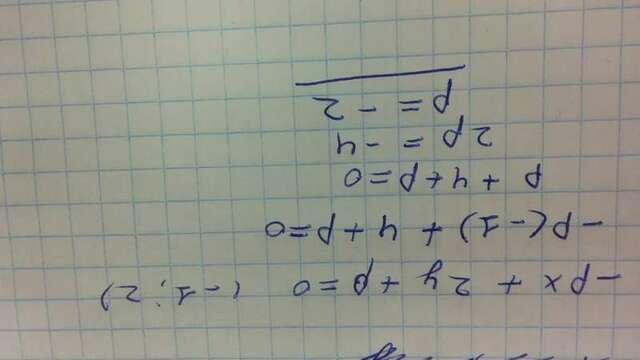 -px + 2y + p = 0 (-1; 2)
-p(-1) + 4 + p = 0
p + 4 + p = 0
2p = -4
p = -2